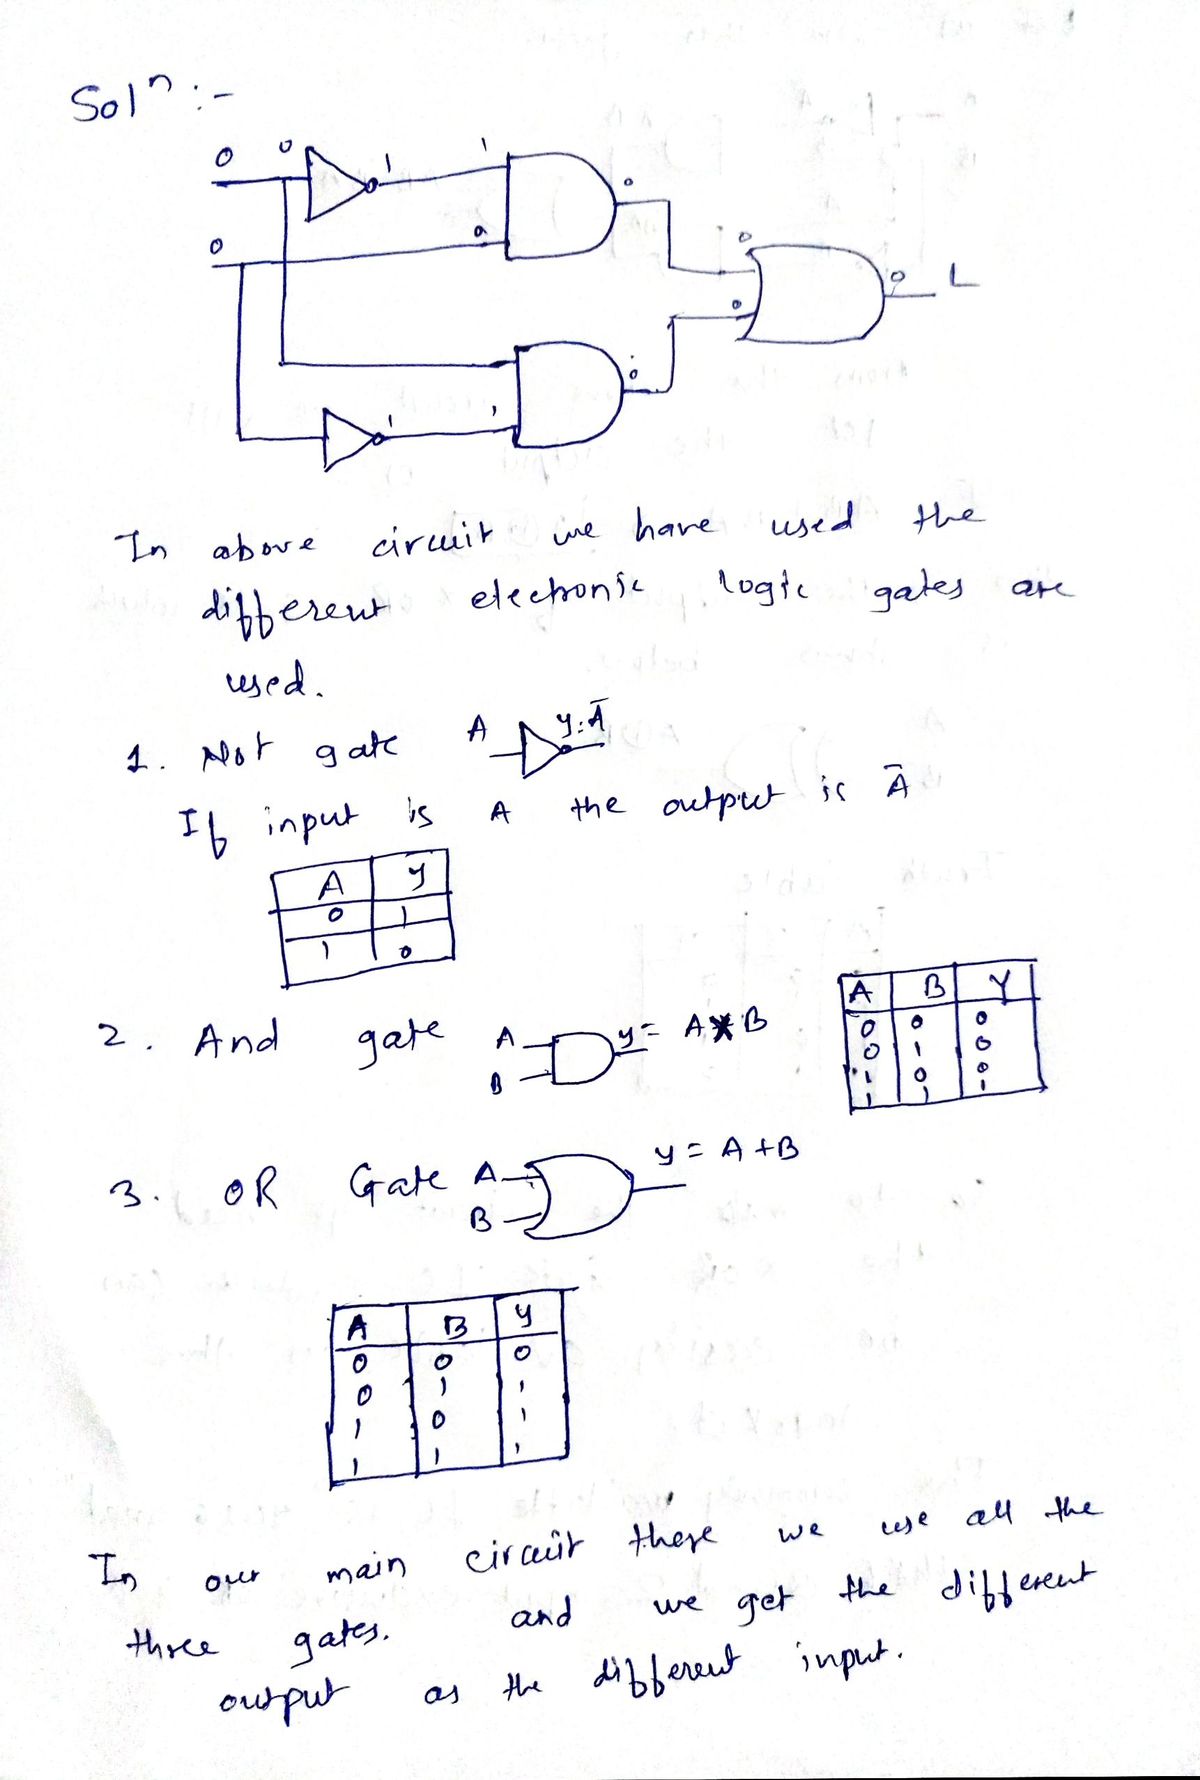 Solⁿ :-
0 0 1 1 0
0 0 0 0 L
0
1 1 0
In above circuit we have used the
different electronic logic gates are
used.
1. Not gate A y=Ā
If input is A the output is Ā
A Y
0 1
1 0
2. And gate A B y = A * B
A B Y
0 0 0
0 1 0
1 0 0
1 1 1
3. OR Gate A B y = A + B
A B Y
0 0 0
0 1 1
1 0 1
1 1 1
In our main circuit these we use all the
three gates. and we get the different
output as the different input.